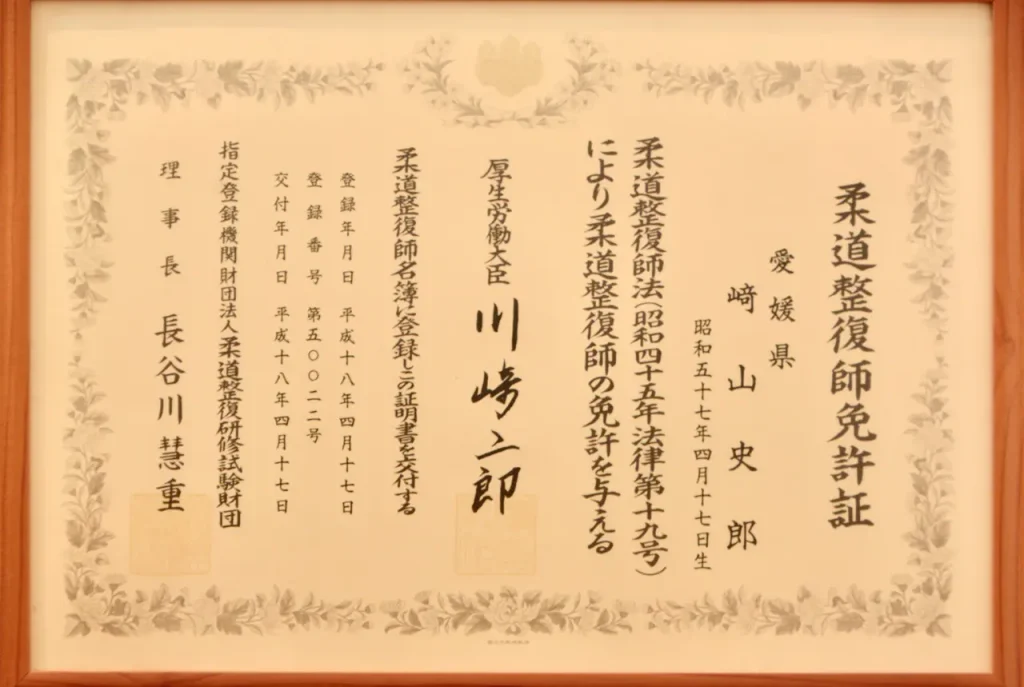 柔道整復師免許証
愛媛県
﨑山史郎
昭和五十七年四月十七日生
柔道整復師法(昭和四十五年法律第十九号)
により柔道整復師の免許を与える
厚生労働大臣 川崎二郎
柔道整復師名簿に登録しこの証明書を交付する
登録年月日 平成十八年四月十七日
登録番号 第五〇〇二二号
交付年月日 平成十八年四月十七日
指定登録機関財団法人柔道整復研修試験財団
理事長 長谷川慧重